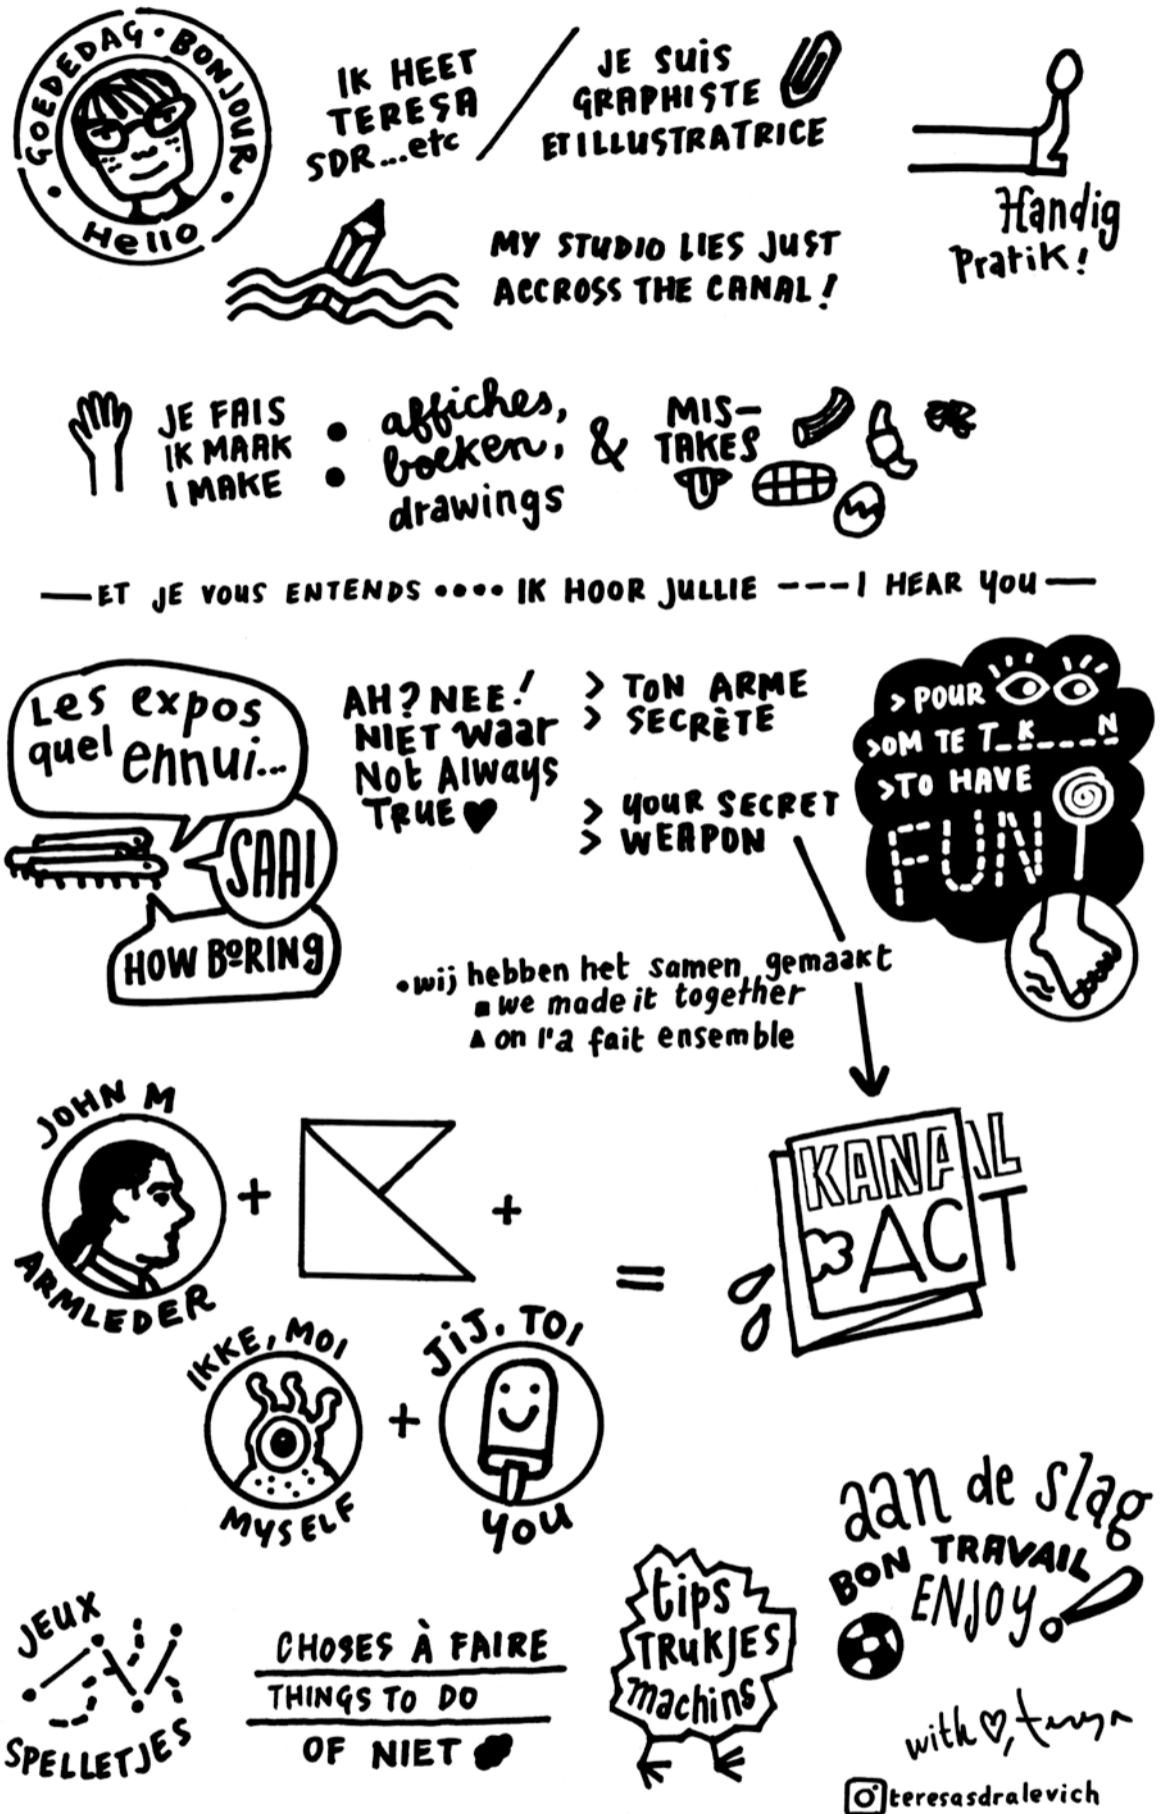 GOEDEDAG • BONJOUR •
Hello
IK HEET
TERESA
SDR...etc
JE SUIS
GRAPHISTE
ET ILLUSTRATRICE
Handig
Pratik!
MY STUDIO LIES JUST
ACCROSS THE CANAL!
JE FAIS
IK MAAK
I MAKE
:
affiches,
boeken,
drawings
&
MIS-
TAKES
—ET JE VOUS ENTENDS •••• IK HOOR JULLIE ---I HEAR YOU—
Les expos
quel ennui...
SAAI
HOW BORING
AH? NEE!
NIET waar
Not Always
TRUE
> TON ARME
> SECRÈTE
> YOUR SECRET
> WEAPON
> POUR
>OM TE T_K____N
>TO HAVE
FUN
•wij hebben het samen gemaakt
▪we made it together
▲on l'a fait ensemble
JOHN M
ARMLEDER
+
+
IKKE, MOI
MYSELF
+
JIJ, TOI
YOU
=
KANAL
ACT
aan de slag
BON TRAVAIL
ENJOY!
JEUX
SPELLETJES
CHOSES À FAIRE
THINGS TO DO
OF NIET
tips
TRUKJES
machins
with ♡, teresa
teresasdralevich